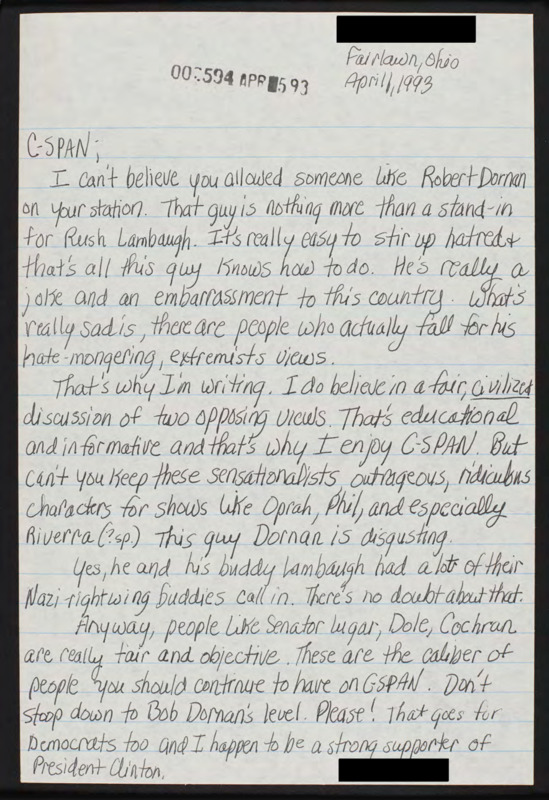 Fairlawn, Ohio
April 1, 1993
005594 APR 5 93
C-SPAN;
I can't believe you allowed someone like Robert Dornan
on your station. That guy is nothing more than a stand-in
for Rush Lambaugh. It's really easy to stir up hatred &
that's all this guy knows how to do. He's really a
joke and an embarrassment to this country. What's
really sad is, there are people who actually fall for his
hate-mongering, extremists views.
That's why I'm writing. I do believe in a fair, civilized
discussion of two opposing views. That's educational
and informative and that's why I enjoy C-SPAN. But
can't you keep these sensationalists, outrageous, ridiculous
characters for shows like Oprah, Phil, and especially
Riverra (?sp.) This guy Dornan is disgusting.
Yes, he and his buddy Lambaugh had a lot of their
Nazi-rightwing buddies call in. There's no doubt about that.
Anyway, people like Senator Lugar, Dole, Cochran
are really fair and objective. These are the caliber of
people you should continue to have on C-SPAN. Don't
stoop down to Bob Dornan's level. Please! That goes for
Democrats too and I happen to be a strong supporter of
President Clinton.